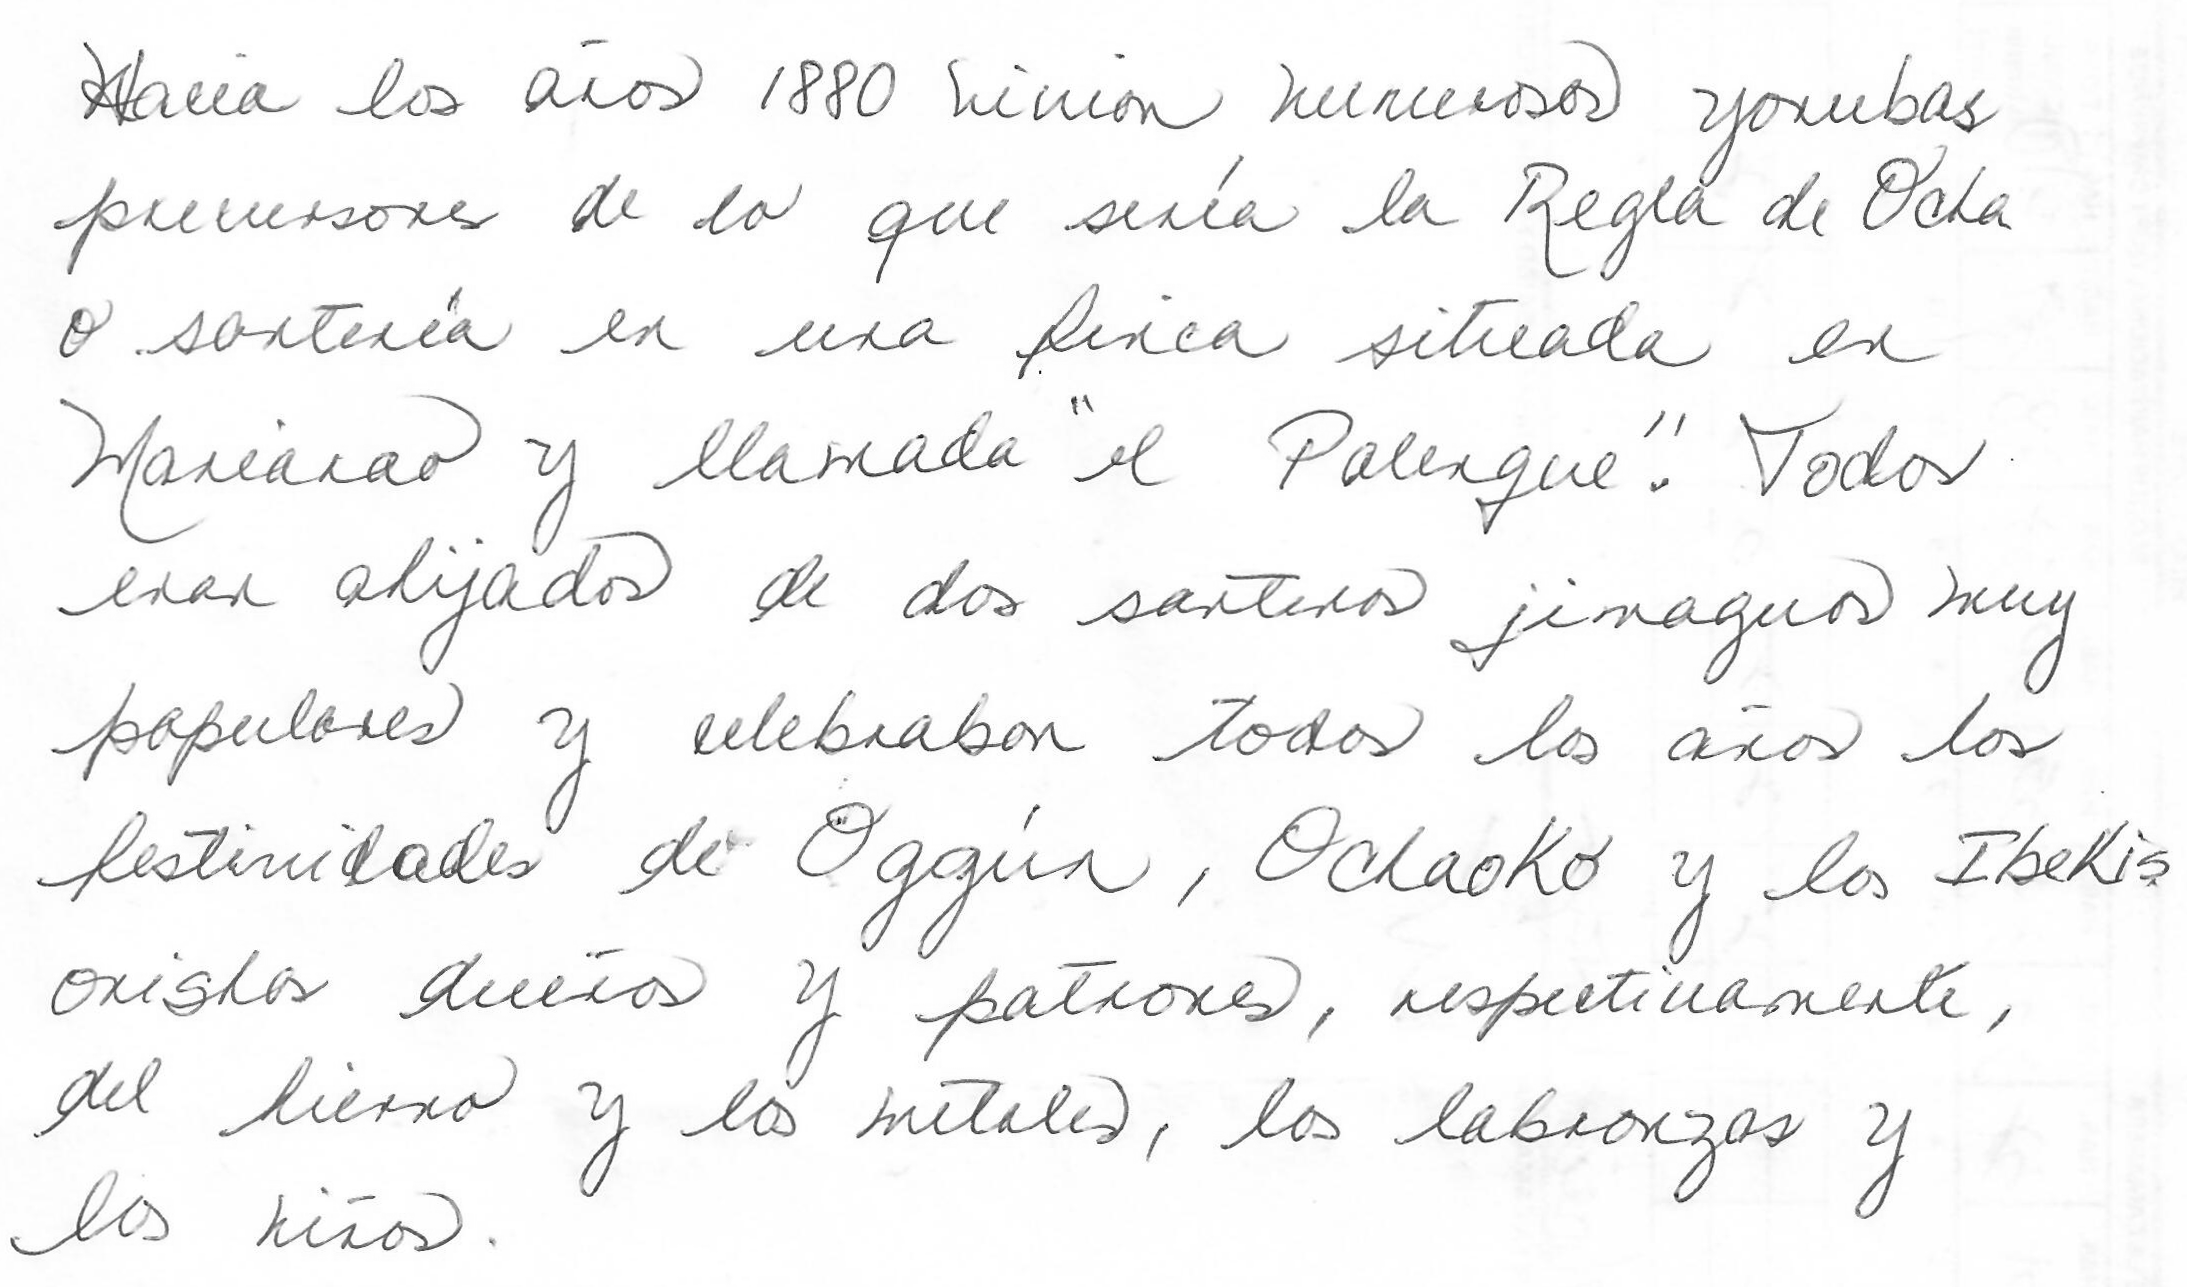 Hacia los años 1880 vivían numerosos yorubas
precursores de lo que sería la Regla de Ocha
o santería en una finca situada en
Marianao y llamada "el Palenque". Todos
eran ahijados de dos santeros jimaguas muy
populares y celebraban todos los años las
festividades de Oggún, Ochaoko y los Ibekis
orishas dueños y patrones, respectivamente,
del hierro y los metales, las labranzas y
los niños.